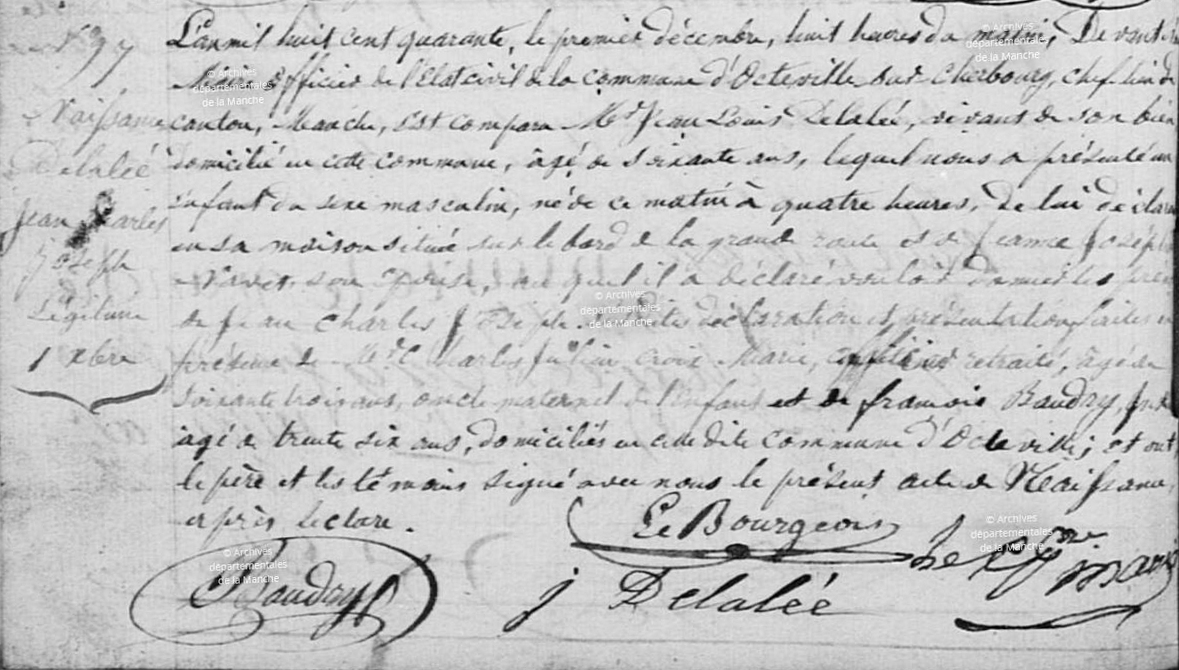 Naissance
Delalée
Jean Charles
Joseph
Légitime
1 Xbre
L'an mil huit cent quarante, le premier décembre, huit heures du matin; Devant
Maire officier de l'Etat civil de la commune d'Octeville sur Cherbourg, chef lieu de
canton, Manche, est comparu Mr Jean Louis Delalée, vivant de son bien
domicilié en cette commune, âgé de soixante ans, lequel nous a présenté un
enfant du sexe masculin, né de ce matin à quatre heures, De lui déclarant
en sa maison située sur le bord de la grande route et de Jeanne Joseph
son Epouse, au quel il a déclaré vouloir donner les
de Jean Charles Joseph. déclaration et présentation faites en
présence de Mr Charles Julien Croix Marie, retraité, âgé de
soixante trois ans, oncle maternel de l'enfant et de françois Baudry,
âgé de trente six ans, domiciliés en cette dite commune d'Octeville; et ont
le père et les témoins signé avec nous le présent acte de Naissance,
après lecture.
Le Bourgeois
Baudry
j Delalée
© Archives
départementales
de la Manche
© Archives
départementales
de la Manche
© Archives
départementales
de la Manche
© Archives
départementales
de la Manche
© Archives
départementales
de la Manche